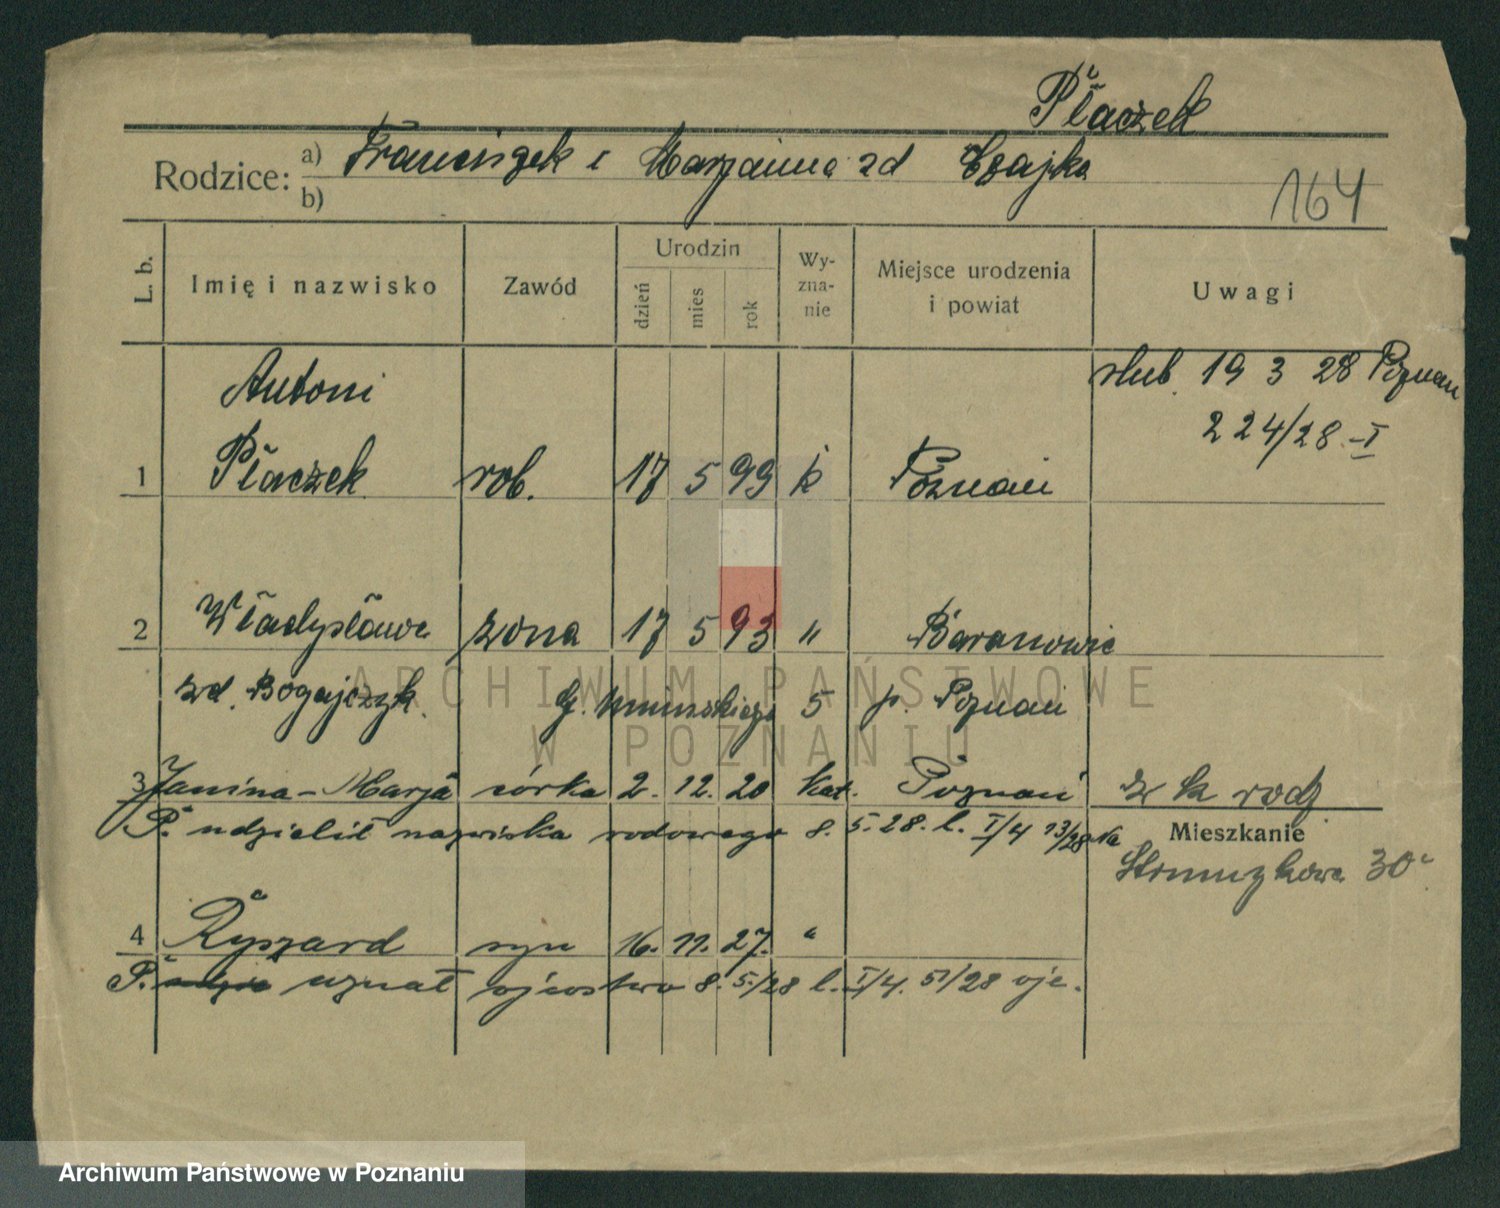 Płaczek
Rodzice: a) Franciszek i Marjanna zd Czajka
b)
164
L. b.
Imię i nazwisko
Zawód
Urodzin
dzień
mies
rok
Wy-
zna-
nie
Miejsce urodzenia
i powiat
Uwagi
Antoni
ślub. 19 3 28 Poznań
224/28-I
1 Płaczek rob. 17 5 99 k Poznań
2 Władysława żona 17 5 93 " Baranowie
zd. Bogajczyk. 5 p. Poznań
3 Janina-Marja córka 2. 12. 20 kat. Poznań z k rodz
P. udzielił nazwiska rodowego 8. 5. 28. l. I/4 13/28
Mieszkanie
Strumykowa 30
4 Ryszard syn 16. 11. 27. "
P. uznał ojcostwo 8. 5./28 l. I/4. 51/28 ojc.
ARCHIWUM PAŃSTWOWE
W POZNANIU
Archiwum Państwowe w Poznaniu